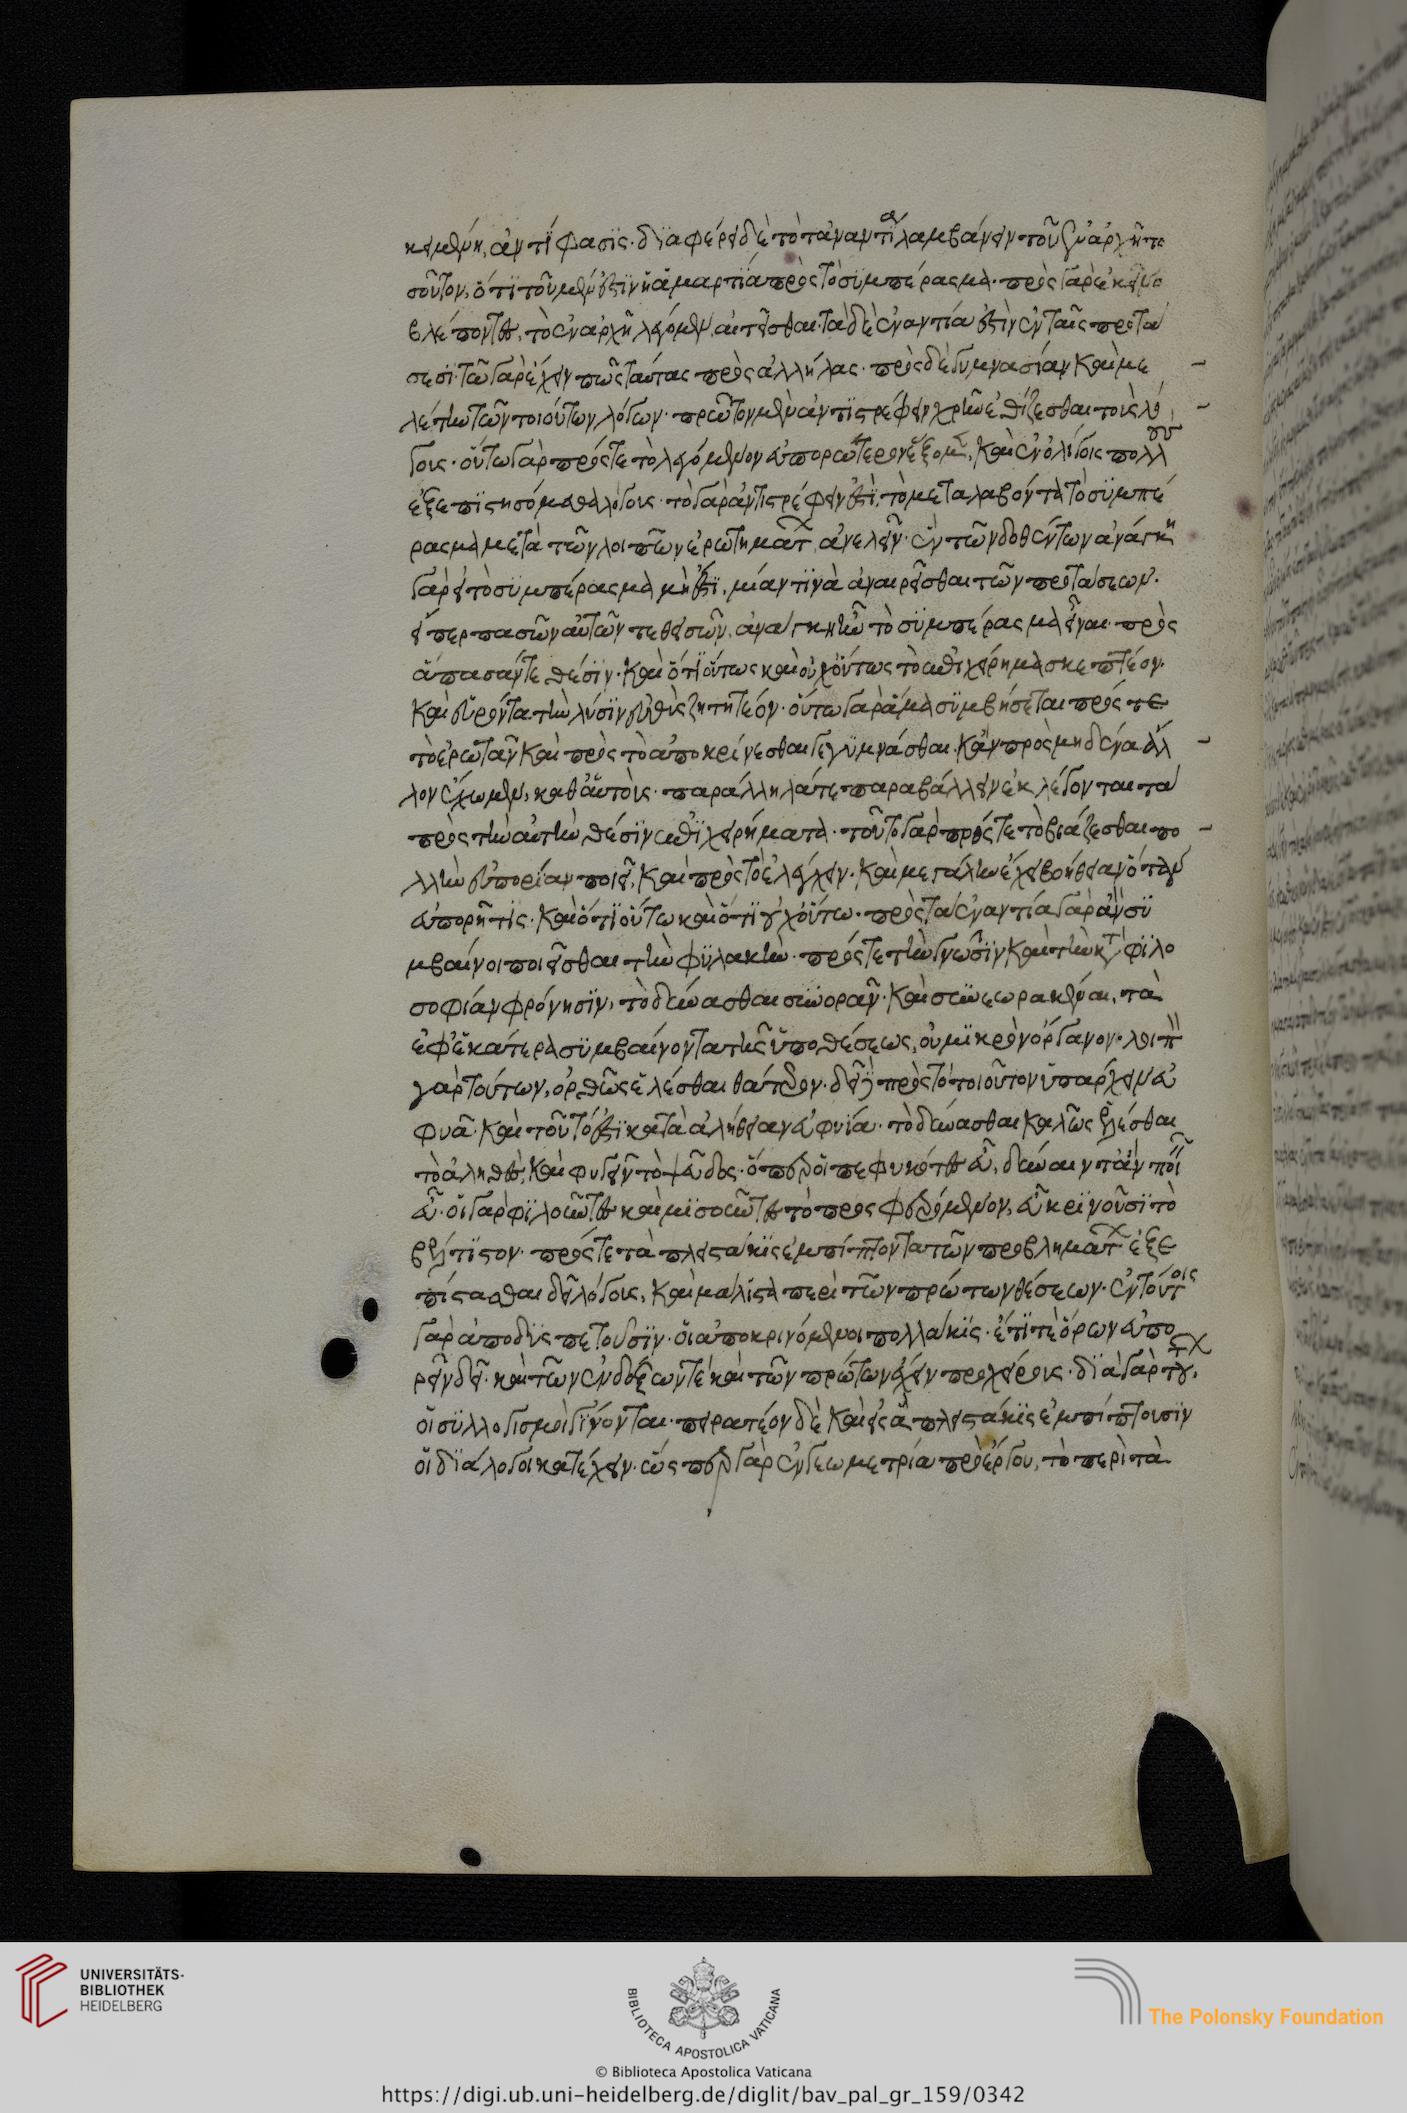 κειμένη, ἀντίφασις· διαφέρει δὲ τὸ τἀναντία λαμβάνειν τοῦ ἐν ἀρχῇ το
σοῦτον, ὅτι τοῦ μέν ἐστιν ἡ ἁμαρτία πρὸς τὸ συμπέρασμα· πρὸς γὰρ ἐκεῖνο
βλέποντες, τὸ ἐν ἀρχῇ λέγομεν αἰτεῖσθαι· τὰ δὲ ἐναντία ἐστὶν ἐν ταῖς προτά
σεσι· τῶ γὰρ ἔχειν πῶς ταύτας πρὸς ἀλλήλας· πρὸς δὲ γυμνασίαν καὶ με
λέτην τῶν τοιούτων λόγων· πρῶτον μὲν ἀντιστρέφειν χρὴ ἐθίζεσθαι τοὺς λό
γοις· οὕτω γὰρ πρός τε τὸ λεγόμενον εὐπορώτερον ἕξομεν, καὶ ἐν ὀλίγοις πολλοὺς
ἐξεπιστησόμεθα λόγοις· τὸ γὰρ ἀντιστρέφειν ἐστὶ, τὸ μεταλαβόντα τὸ συμπέ
ρασμα μετὰ τῶν λοιπῶν ἐρωτημάτων, ἀνελεῖν· ἓν τῶν δοθέντων ἀνάγκη
γὰρ εἰ τὸ συμπέρασμα μὴ ἐστὶ, μίαν τινὰ ἀναιρεῖσθαι τῶν προτάσεων·
εἴπερ πασῶν αὐτῶν τεθεισῶν, ἀνάγκη ἦν τὸ συμπέρασμα εἶναι· πρὸς
ἅπασάν τε θέσιν· καὶ ὅτι οὕτως καὶ οὐχ οὕτως τὸ ἐπιχείρημα σκεπτέον·
καὶ εὑρόντα τὴν λύσιν εὐθὺς ζητητέον· οὕτω γὰρ ἅμα συμβήσεται πρός τε
τὸ ἐρωτᾶν καὶ πρὸς τὸ ἀποκρίνεσθαι γεγυμνάσθαι· κἂν πρὸς μηδένα ἄλ
λον ἔχωμεν, καθ' αὑτοὺς· παράλληλά τε παραβάλλειν ἐκλέγονται τὰ
πρὸς τὴν αὐτὴν θέσιν ἐπιχειρήματα· τοῦτο γὰρ πρός τε τὸ βιάζεσθαι πο
λλὴν εὐπορίαν ποιεῖ, καὶ πρὸς τὸ ἐλέγχειν· καὶ μεγάλην ἔχει βοήθειαν ὅταν
εὐπορῆ τις· καὶ ὅτι οὕτω καὶ ὅτι οὐχ οὕτω· πρὸς τὰ ἐναντία γὰρ ἂν συ
μβαίνοι ποιεῖσθαι τὴν φυλακὴν· πρός τε τὴν γνῶσιν καὶ τὴν κατὰ φιλο
σοφίαν φρόνησιν, τὸ δύνασθαι συνορᾶν· καὶ συνεωρακέναι, τὰ
ἐφ' ἑκάτερα συμβαίνοντα τῆς ὑποθέσεως, οὐ μικρὸν ὄργανον· λοιπὸν
γὰρ τούτων, ὀρθῶς ἑλέσθαι θάτερον· δεῖ δὲ πρὸς τὸ τοιοῦτον ὑπάρχειν εὐ
φυᾶ· καὶ τοῦτό ἐστι κατὰ ἀλήθειαν εὐφυΐα· τὸ δύνασθαι καλῶς ἑλέσθαι
τὸ ἀληθὲς, καὶ φυγεῖν τὸ ψεῦδος· ὅπερ οἱ πεφυκότες εὖ, δύναιντ' ἂν ποιεῖν
εὖ· οἱ γὰρ φιλοῦντες καὶ μισοῦντες τὸ προσφερόμενον, εὖ κρινοῦσι τὸ
βέλτιστον· πρός τε τὰ πλειστάκις ἐμπίπτοντα τῶν προβλημάτων ἐξε
πίστασθαι δεῖ λόγους, καὶ μάλιστα περὶ τῶν πρώτων θέσεων· ἐν τούτοις
γὰρ ἀποδυσπετοῦσιν· οἱ ἀποκρινόμενοι πολλάκις· ἔτι τὲ ὅρων εὐπο
ρεῖν δεῖ· καὶ τῶν ἐνδόξων τὲ καὶ τῶν πρώτων ἔχειν προχείρους· διὰ γὰρ τούτων,
οἱ συλλογισμοὶ γίνονται· πειρατέον δὲ καὶ εἰς ἃ πλειστάκις ἐμπίπτουσιν
οἱ διάλογοι κατέχειν· ὥσπερ γὰρ ἐν γεωμετρία πρὸ ἔργου, τὸ περὶ τὰ
UNIVERSITÄTS-
BIBLIOTHEK
HEIDELBERG
BIBLIOTECA APOSTOLICA VATICANA
The Polonsky Foundation
© Biblioteca Apostolica Vaticana
https://digi.ub.uni-heidelberg.de/diglit/bav_pal_gr_159/0342